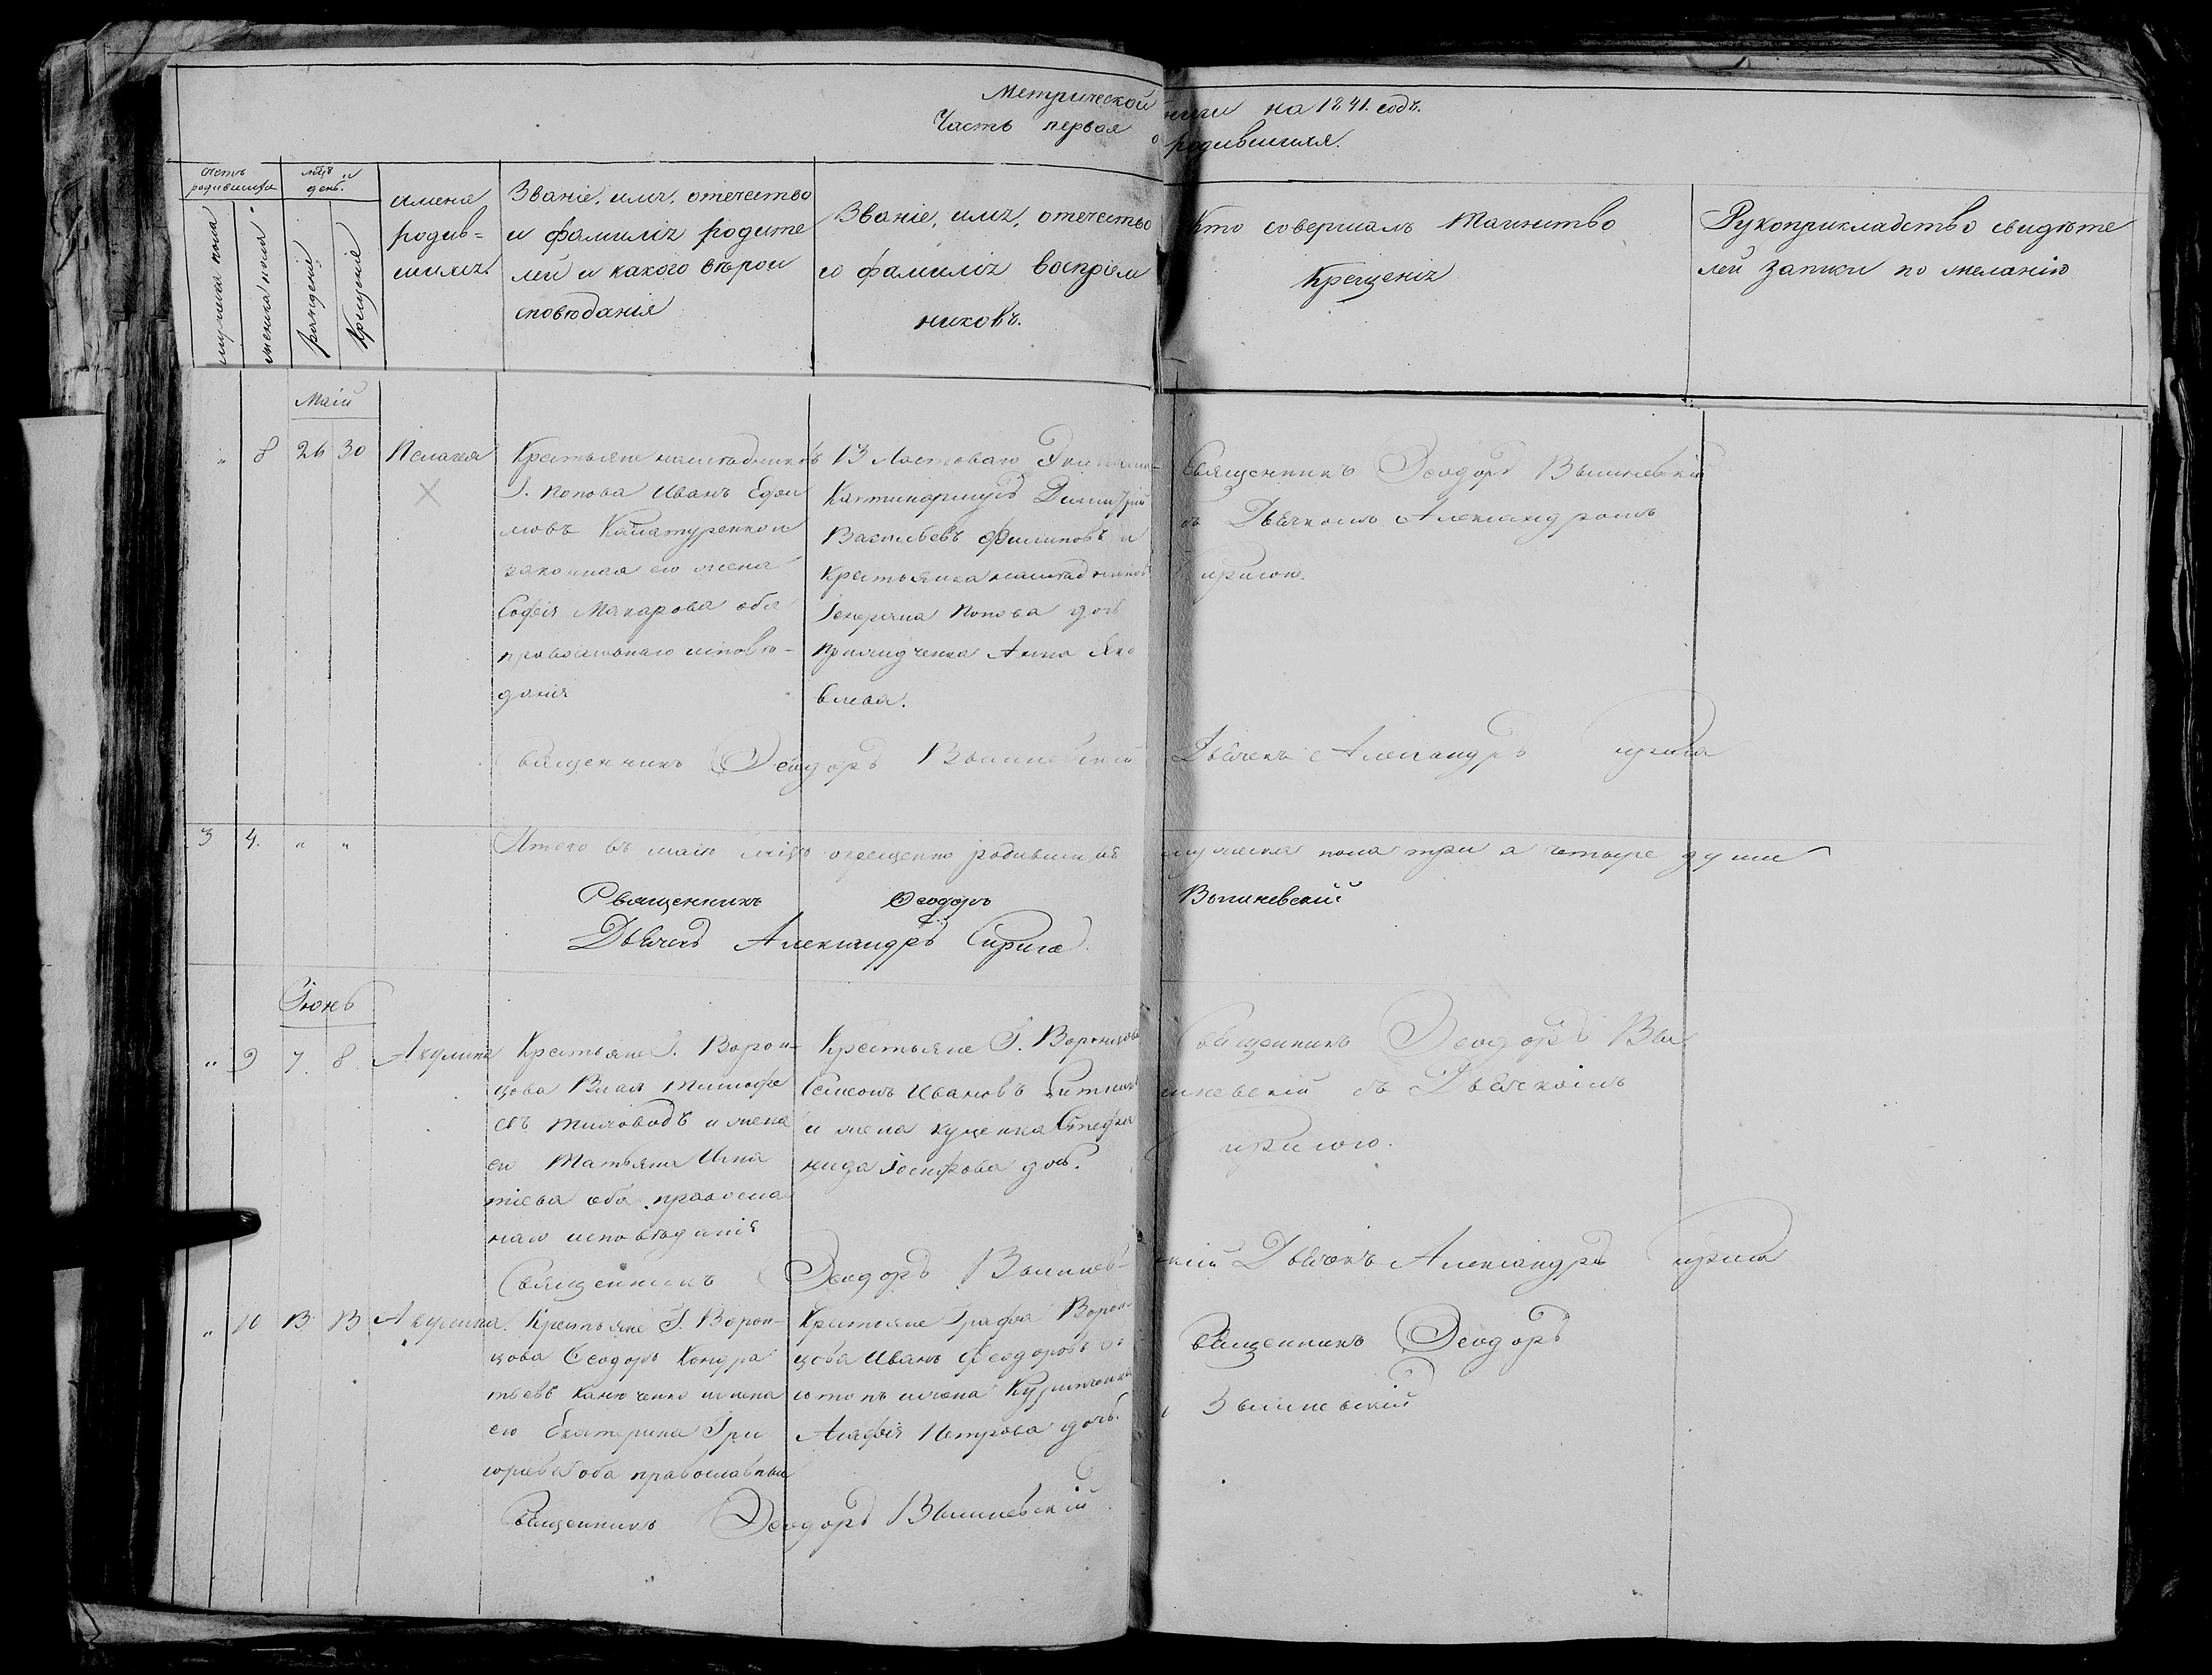 Метрической книги на 1841. годъ.
Часть первая о родившихся.
Счетъ родившихся
мѣсяцъ и день.
мужеска пола
женска пола
рожденія
Крещенія
имена родив=
шихся
Званіе, имя, отечество
и фамилія родите
лей и какого вѣрои
сповѣданія
Званіе, имя, отечество
и фамилія воспріем
никовъ.
Кто совершалъ Таинство
Крещенія
Рукоприкладство свидѣте
лей записи по желанію
Маій
" 8 26 30 Пелагея
Крестьяне наслѣдниковъ
Г. Попова Иванъ Ефи
мовъ и
законная его жена
Софія Макарова оба
православнаго исповѣ-
данія
13
Димитрій
Васильевъ Филиповъ и
крестьянка наслѣдниковъ
Генерала Попова дочь
Анна Яко
влева.
Священникъ Ѳеодоръ Вышневскій
съ Дьячкомъ Александромъ
Сиригою.
Священникъ Ѳеодоръ Вышневскій Дьячекъ Александръ Сирига
3 4. " " Итого въ маіѣ мѣсяцѣ окрещенно родившихся мужеска пола три а четыре души
Священникъ Ѳеодоръ Вышневскій
Дьячекъ Александръ Сирига
Іюнь
" 9 7. 8. Акулина
Крестьяне Г. Ворон-
цова Власъ Тимофе
евъ и жена
его Татьяна Игна
тіева оба православ
наго исповѣданія
Крестьяне Г. Воронцова
Семіонъ Ивановъ
и жена Куценка Стефа
нида Іосифова дочь.
Священникъ Ѳеодоръ Вы
шневскій съ Дьячкомъ
Сиригою.
Священникъ Ѳеодоръ Вышневскій Дьячекъ Александръ Сирига
" 10 13 13 Акулина.
Крестьяне Г. Ворон-
цова Ѳеодоръ Кондра
тьевъ Канюченко и жена
его Екатерина Гри
горьева оба православныи
Крестьяне Графа Ворон-
цова Иванъ Феодоровъ
и жена
Агафія Петрова дочь.
Священникъ Ѳеодоръ
Вышневскій
Священникъ Ѳеодоръ Вышневскій